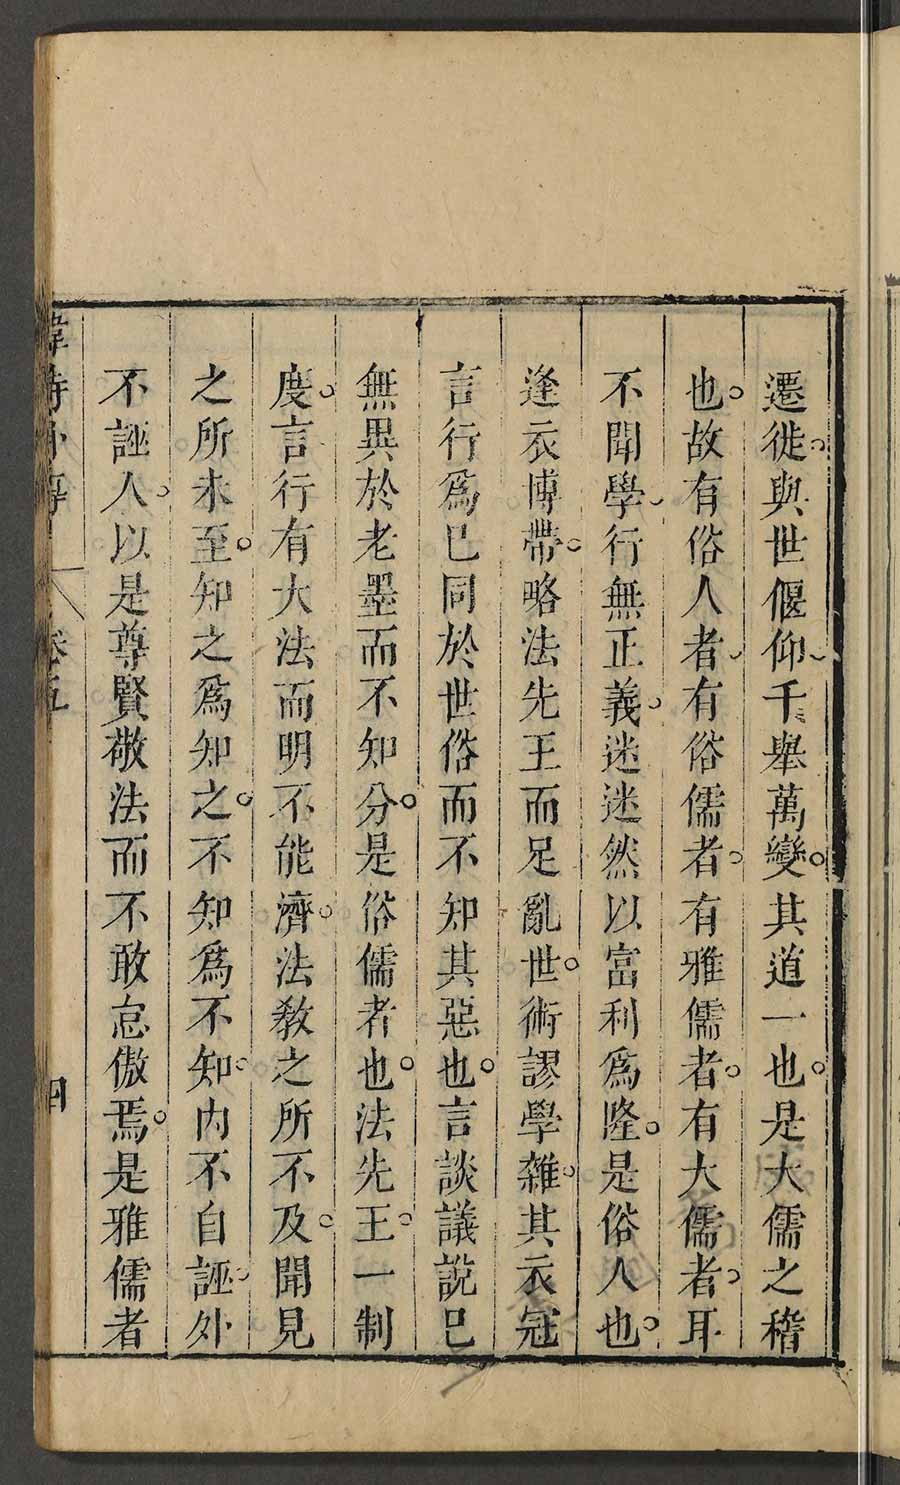 遷徙與世偃仰千舉萬變其道一也是大儒之稽
也故有俗人者有俗儒者有雅儒者有大儒者耳
不聞學行無正義迷迷然以富利爲隆是俗人也
逢衣博帶略法先王而足亂世術謬學雜其衣冠
言行爲已同於世俗而不知其惡也言談議說已
無異於老墨而不知分是俗儒者也法先王一制
度言行有大法而明不能濟法教之所不及聞見
之所未至知之爲知之不知爲不知內不自誣外
不誣人以是尊賢敬法而不敢怠傲焉是雅儒者
韓詩外傳 卷五 四